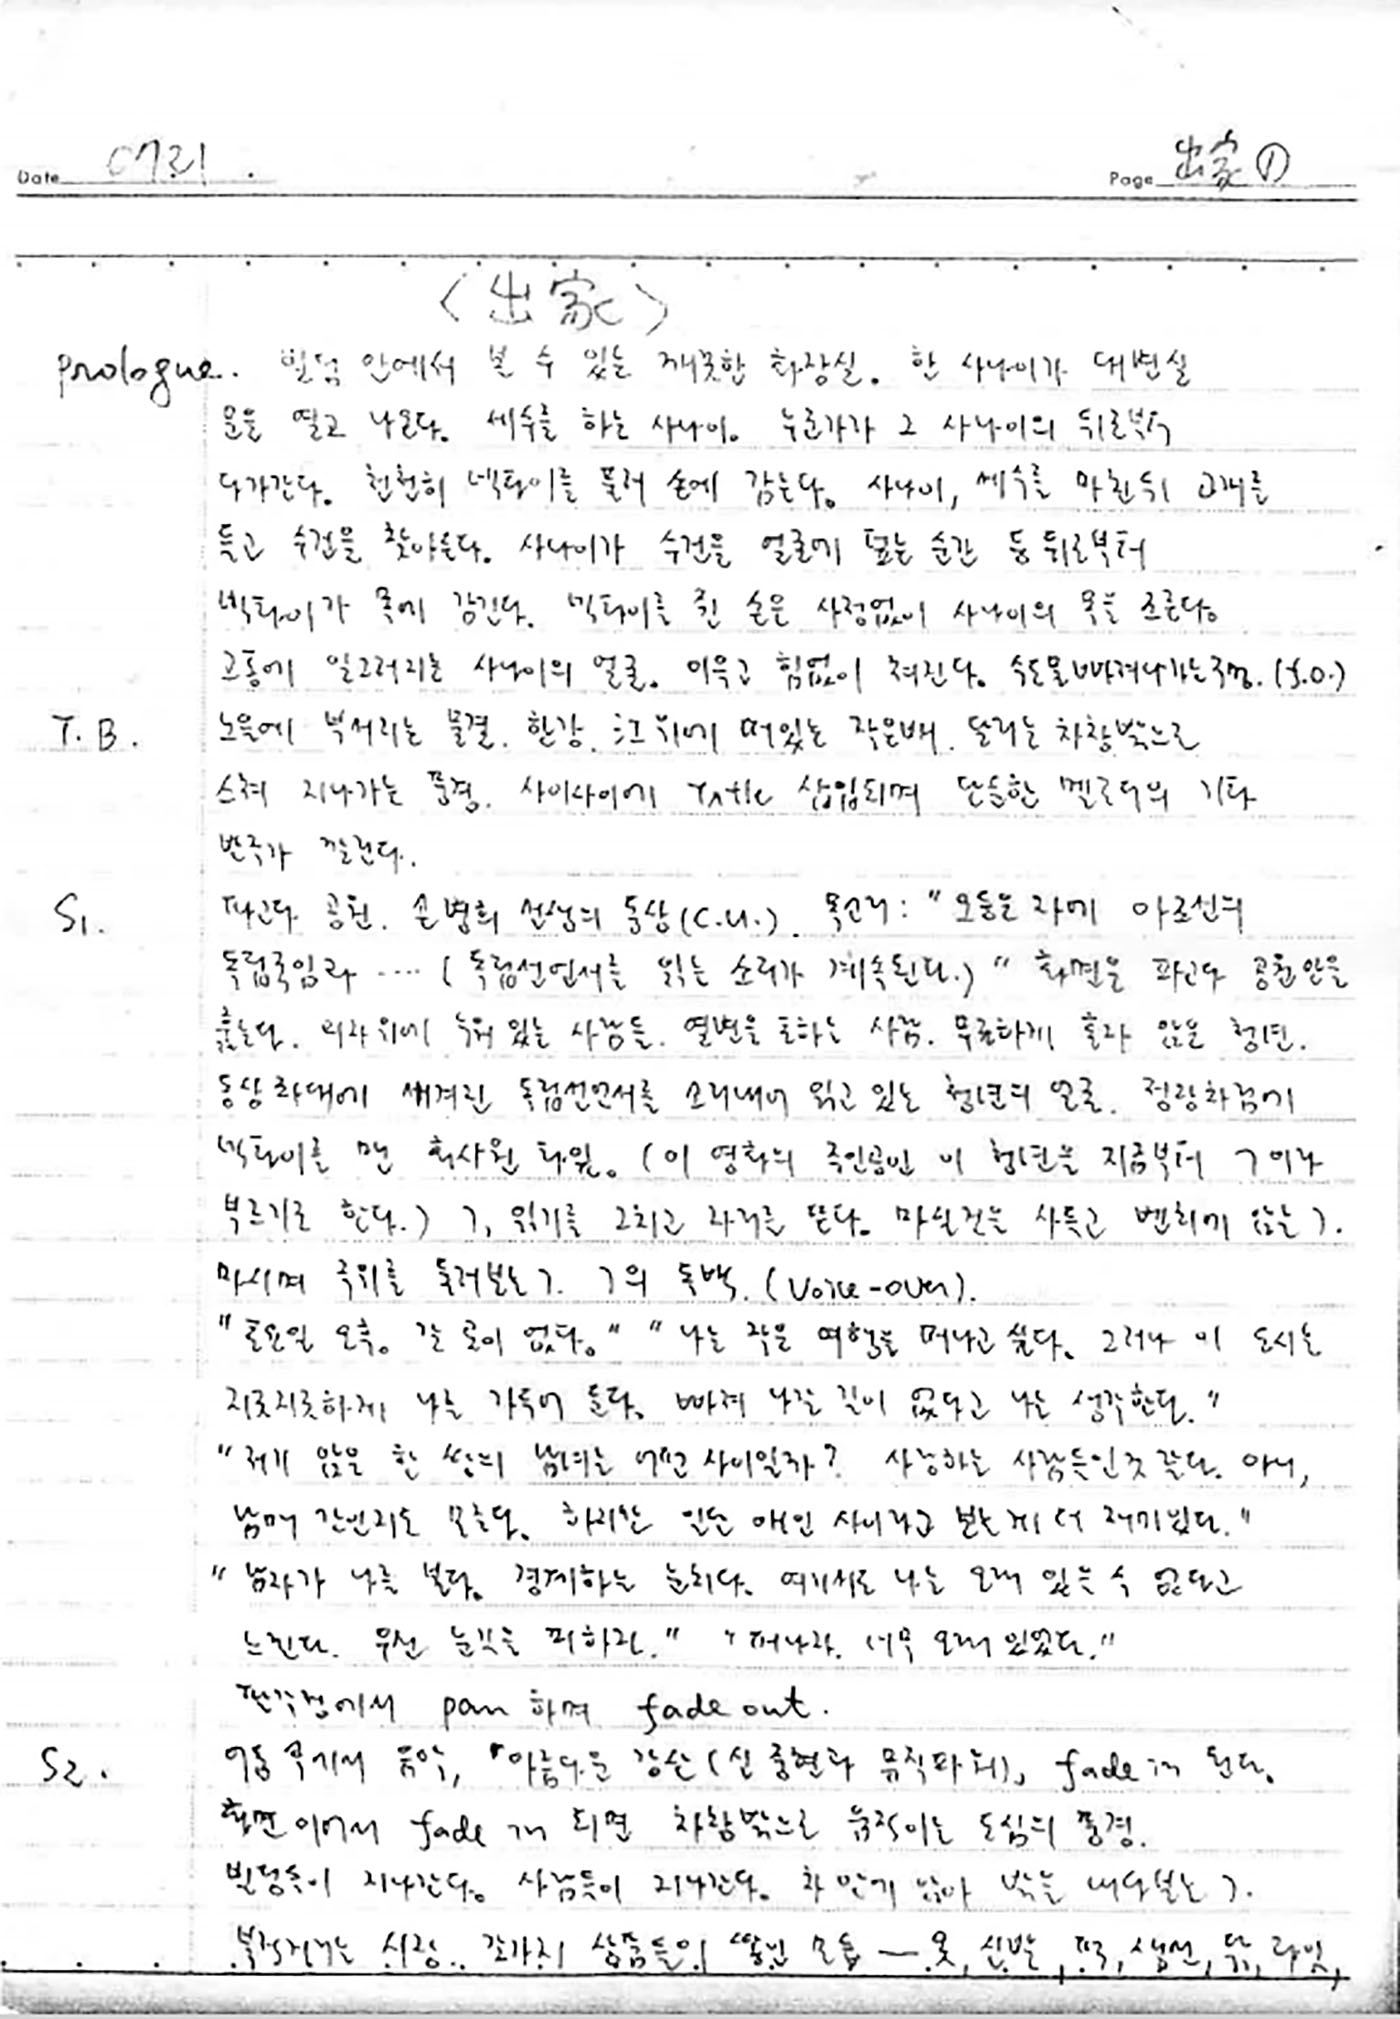 Date
Page 出家 ①
〈出家〉
prologue. 빌딩 안에서 볼 수 있는 깨끗한 화장실. 한 사나이가 대변실
문을 열고 나온다. 세수를 하는 사나이. 누군가가 그 사나이의 뒤로부터
다가간다. 천천히 넥타이를 풀러 손에 감는다. 사나이, 세수를 마친 뒤 고개를
들고 수건을 찾아든다. 사나이가 수건을 얼굴에 덮는 순간 등뒤로부터
넥타이가 목에 감긴다. 넥타이를 쥔 손은 사정없이 사나이의 목을 조른다.
고통에 일그러지는 사나이의 얼굴. 이윽고 힘없이 쳐진다. 수돗물 빠져나가는 구멍. (f.o.)
T.B. 노을에 부서리는 물결. 한강. 江 위에 떠있는 작은배. 달리는 차창밖으로
스쳐 지나가는 풍경. 사이사이에 Title 삽입되며 단순한 멜로디의 기타
반주가 깔린다.
S1. 파고다 공원. 손병희 선생의 동상(C.U.). 목소리: "오등은 자에 아조선의
독립국임과 .... (독립선언서를 읽는 소리가 계속된다.)" 화면은 파고다 공원 안을
훑는다. 의자위에 누워 있는 사람들. 열변을 토하는 사람. 무료하게 혼자 앉은 청년.
동상 좌대에 새겨진 독립선언서를 소리내어 읽고 있는 청년의 얼굴. 정장차림에
넥타이를 맨 회사원 타입. (이 영화의 주인공인 이 청년을 지금부터 ㄱ이라
부르기로 한다.) ㄱ, 읽기를 그치고 자리를 뜬다. 마실 것을 사들고 벤치에 앉는 ㄱ.
마시며 주위를 둘러보는 ㄱ. ㄱ의 독백. (Voice-over).
"토요일 오후. 갈 곳이 없다." "나는 작은 여행을 떠나고 싶다. 그러나 이 도시는
지긋지긋하게 나를 가두어 둔다. 빠져 나갈 길이 없다고 나는 생각한다."
"저기 앉은 한 쌍의 남녀는 어떤 사이일까? 사랑하는 사람들인것 같다. 아니,
남매 간인지도 모른다. 하지만 일단 애인 사이라고 보는게 더 재미있다."
"남자가 나를 본다. 경계하는 눈치다. 여기서도 나는 오래 있을 수 없다고
느낀다. 우선 눈길을 피하자." "떠나자. 너무 오래 있었다."
팔각정에서 pan 하며 fade out.
S2. 어둠 속에서 음악, "아름다운 강산(신중현과 뮤직파워), fade in 된다.
화면 이어서 fade in 되면 차창밖으로 움직이는 도심의 풍경.
빌딩들이 지나간다. 사람들이 지나간다. 차 안에 앉아 밖을 내다보는 ㄱ.
북적거리는 시장. 갖가지 상품들의 쌓인 모습 — 옷, 신발, 떡, 생선, 닭, 과일,